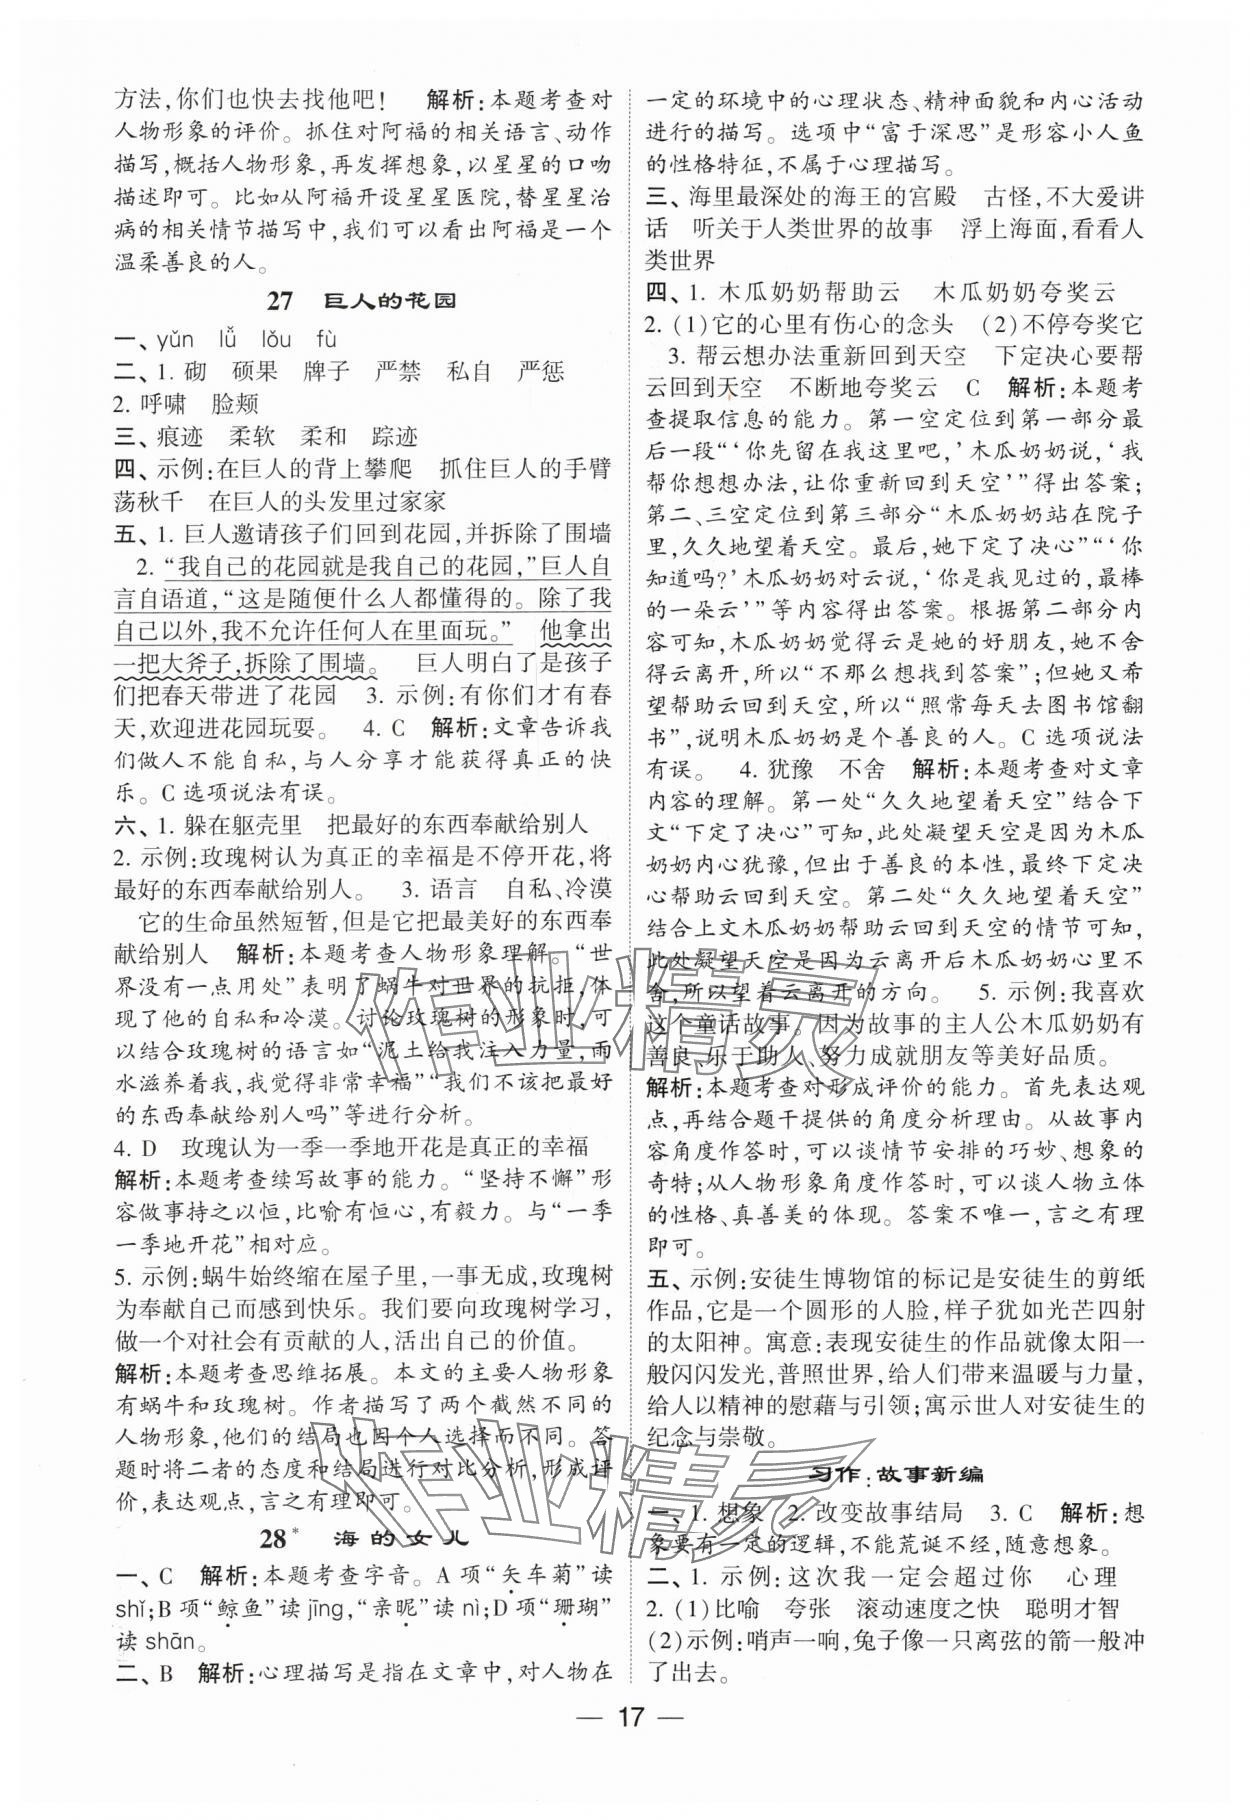 方法,你们也快去找他吧!　解析:本题考查对
人物形象的评价。抓住对阿福的相关语言、动作
描写,概括人物形象,再发挥想象,以星星的口吻
描述即可。比如从阿福开设星星医院,替星星治
病的相关情节描写中,我们可以看出阿福是一个
温柔善良的人。
27　巨人的花园
一、yǔn　lǚ　lǒu　fù
二、1. 砌　硕果　牌子　严禁　私自　严惩
2. 呼啸　脸颊
三、痕迹　柔软　柔和　踪迹
四、示例:在巨人的背上攀爬　抓住巨人的手臂
荡秋千　在巨人的头发里过家家
五、1. 巨人邀请孩子们回到花园,并拆除了围墙
2. “我自己的花园就是我自己的花园,”巨人自
言自语道,“这是随便什么人都懂得的。除了我
自己以外,我不允许任何人在里面玩。”　他拿出
一把大斧子,拆除了围墙。　巨人明白了是孩子
们把春天带进了花园　3. 示例:有你们才有春
天,欢迎进花园玩耍。　4. C　解析:文章告诉我
们做人不能自私,与人分享才能获得真正的快
乐。C 选项说法有误。
六、1. 躲在躯壳里　把最好的东西奉献给别人
2. 示例:玫瑰树认为真正的幸福是不停开花,将
最好的东西奉献给别人。　3. 语言　自私、冷漠
它的生命虽然短暂,但是它把最美好的东西奉
献给别人　解析:本题考查人物形象理解。“世
界没有一点用处”表明了蜗牛对世界的抗拒,体
现了他的自私和冷漠。讨论玫瑰树的形象时,可
以结合玫瑰树的语言如“泥土给我注入力量,雨
水滋养着我,我觉得非常幸福”“我们不该把最好
的东西奉献给别人吗”等进行分析。
4. D　玫瑰认为一季一季地开花是真正的幸福
解析:本题考查续写故事的能力。“坚持不懈”形
容做事持之以恒,比喻有恒心,有毅力。与“一季
一季地开花”相对应。
5. 示例:蜗牛始终缩在屋子里,一事无成,玫瑰树
为奉献自己而感到快乐。我们要向玫瑰树学习,
做一个对社会有贡献的人,活出自己的价值。
解析:本题考查思维拓展。本文的主要人物形象
有蜗牛和玫瑰树。作者描写了两个截然不同的
人物形象,他们的结局也因个人选择而不同。答
题时将二者的态度和结局进行对比分析,形成评
价,表达观点,言之有理即可。
28*　海的女儿
一、C　解析:本题考查字音。A 项“矢车菊”读
shǐ;B 项“鲸鱼”读 jīng,“亲昵”读 nì;D 项“珊瑚”
读 shān。
二、B　解析:心理描写是指在文章中,对人物在
一定的环境中的心理状态、精神面貌和内心活动
进行的描写。选项中“富于深思”是形容小人鱼
的性格特征,不属于心理描写。
三、海里最深处的海王的宫殿　古怪,不大爱讲
话　听关于人类世界的故事　浮上海面,看看人
类世界
四、1. 木瓜奶奶帮助云　木瓜奶奶夸奖云
2. (1)它的心里有伤心的念头　(2)不停夸奖它
3. 帮云想办法重新回到天空　下定决心要帮
云回到天空　不断地夸奖云　C　解析:本题考
查提取信息的能力。第一空定位到第一部分最
后一段“‘你先留在我这里吧,’木瓜奶奶说,‘我
帮你想想办法,让你重新回到天空’”得出答案;
第二、三空定位到第三部分“木瓜奶奶站在院子
里,久久地望着天空。最后,她下定了决心”“‘你
知道吗?’木瓜奶奶对云说,‘你是我见过的,最棒
的一朵云’”等内容得出答案。根据第二部分内
容可知,木瓜奶奶觉得云是她的好朋友,她不舍
得云离开,所以“不那么想找到答案”;但她又希
望帮助云回到天空,所以“照常每天去图书馆翻
书”,说明木瓜奶奶是个善良的人。C 选项说法
有误。　4. 犹豫　不舍　解析:本题考查对文章
内容的理解。第一处“久久地望着天空”结合下
文“下定了决心”可知,此处凝望天空是因为木瓜
奶奶内心犹豫,但出于善良的本性,最终下定决
心帮助云回到天空。第二处“久久地望着天空”
结合上文木瓜奶奶帮助云回到天空的情节可知,
此处凝望天空是因为云离开后木瓜奶奶心里不
舍,所以望着云离开的方向。　5. 示例:我喜欢
这个童话故事。因为故事的主人公木瓜奶奶有
善良、乐于助人、努力成就朋友等美好品质。
解析:本题考查对形成评价的能力。首先表达观
点,再结合题干提供的角度分析理由。从故事内
容角度作答时,可以谈情节安排的巧妙、想象的
奇特;从人物形象角度作答时,可以谈人物立体
的性格、真善美的体现。答案不唯一,言之有理
即可。
五、示例:安徒生博物馆的标记是安徒生的剪纸
作品,它是一个圆形的人脸,样子犹如光芒四射
的太阳神。寓意:表现安徒生的作品就像太阳一
般闪闪发光,普照世界,给人们带来温暖与力量,
给人以精神的慰藉与引领;寓示世人对安徒生的
纪念与崇敬。
习作:故事新编
一、1. 想象　2. 改变故事结局　3. C　解析:想
象要有一定的逻辑,不能荒诞不经,随意想象。
二、1. 示例:这次我一定会超过你　心理
2. (1)比喻　夸张　滚动速度之快　聪明才智
(2)示例:哨声一响,兔子像一只离弦的箭一般冲
了出去。
— 17 —
作业精灵
作业精灵